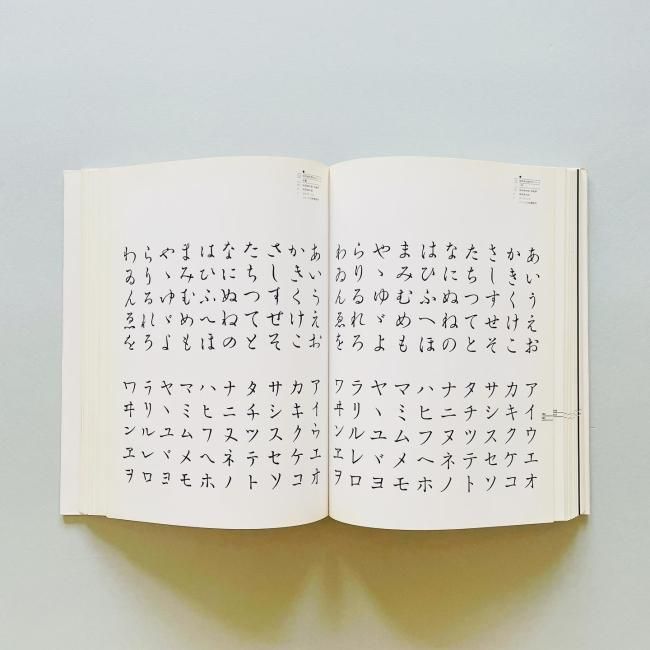 あいうえお
かきくけこ
さしすせそ
たちつてと
なにぬねの
はひふへほ
まみむめも
やゝゆゞよ
らりるれろ
わゐんゑを
アイウエオ
カキクケコ
サシスセソ
タチツテト
ナニヌネノ
ハヒフヘホ
マミムメモ
ヤヽユヾヨ
ラリルレロ
ワヰンヱヲ
あいうえお
かきくけこ
さしすせそ
たちつてと
なにぬねの
はひふへほ
まみむめも
やゝゆゞよ
らりるれろ
わゐんゑを
アイウエオ
カキクケコ
サシスセソ
タチツテト
ナニヌネノ
ハヒフヘホ
マミムメモ
ヤヽユヾヨ
ラリルレロ
ワヰンヱヲ